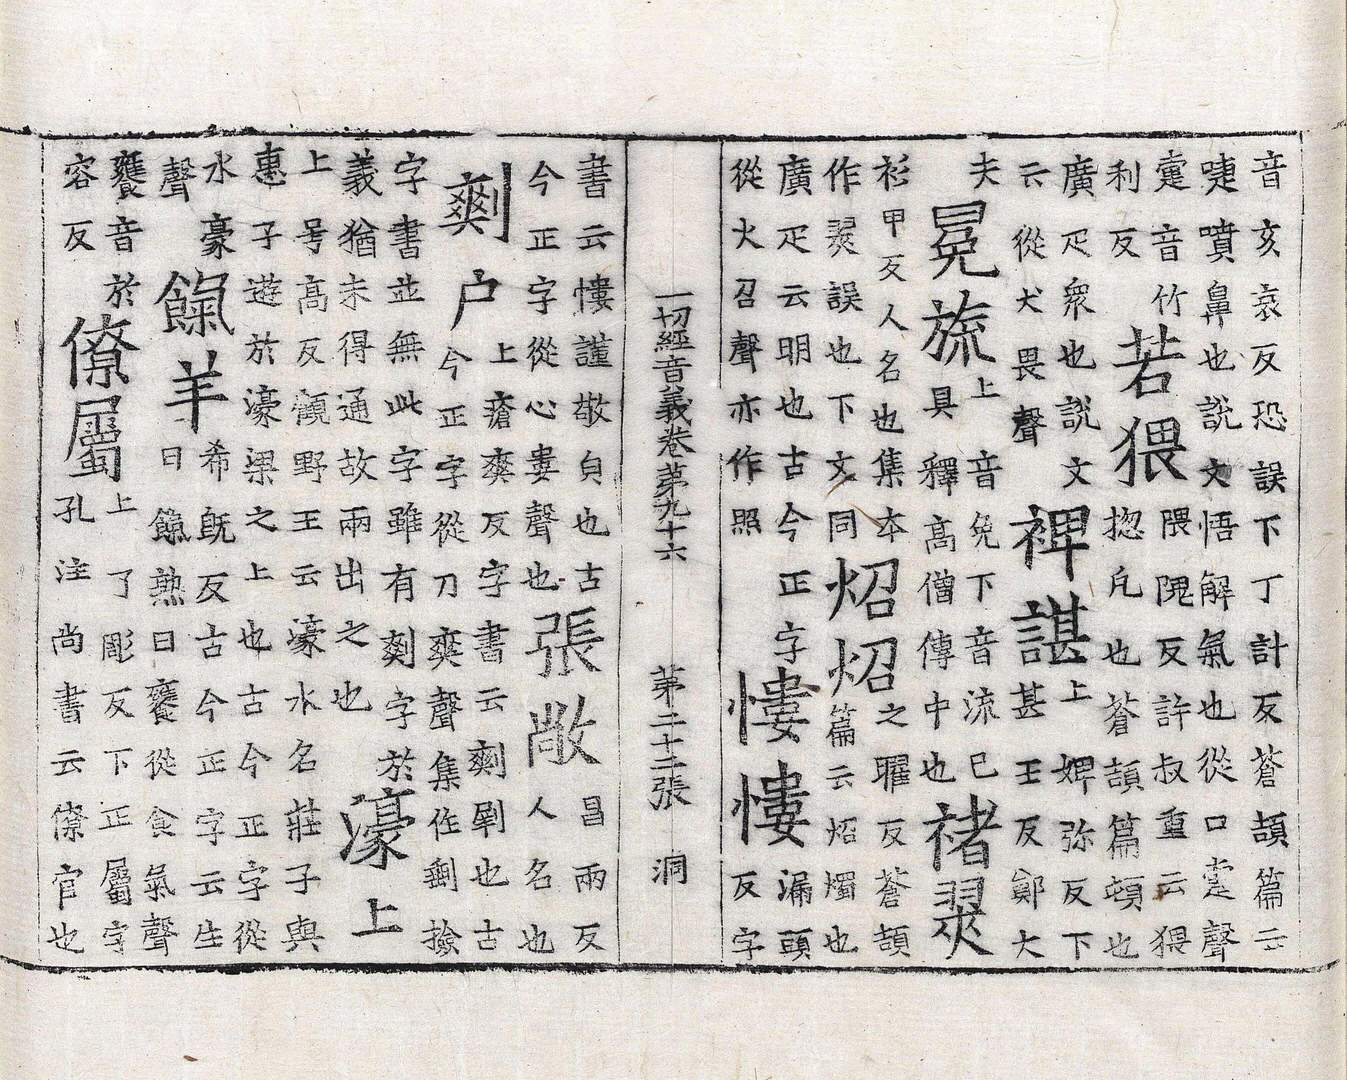 音亥哀反恐誤下丁計反蒼頡篇云
嚏噴鼻也說文悟解氣也從口疐聲
疐音竹
利反
若猥
隈隗反許叔重云猥
揔凡也蒼頡篇頓也
廣疋衆也說文
云從犬畏聲
裨諶
上婢弥反下
甚壬反鄭大
夫
冕旒
上音免下音流已
具釋高僧傳中也
褚翜
衫甲反人名也集本
作翜誤也下文同
炤炤
之曜反蒼頡
篇云炤燭也
廣疋云明也古今正字
從火召聲亦作照
慺慺
漏頭
反字
一切經音義卷第九十六 第二十二張 洞
書云慺謹敬皃也古
今正字從心婁聲也
張敞
昌兩反
人名也
㓽户
上瘡爽反字書云㓽劅也古
今正字從刀爽聲集作剻撿
字書並無此字雖有㓽字於
義猶未得通故兩出之也
濠上
上号高反顧野王云濠水名莊子與
惠子遊於濠梁之上也古今正字從
水豪
聲
餼羊
希旣反古今正字云生
曰餼熟曰饔從食氣聲
饔音於
容反
僚屬
上了彫反下正屬字
孔注尚書云僚官也